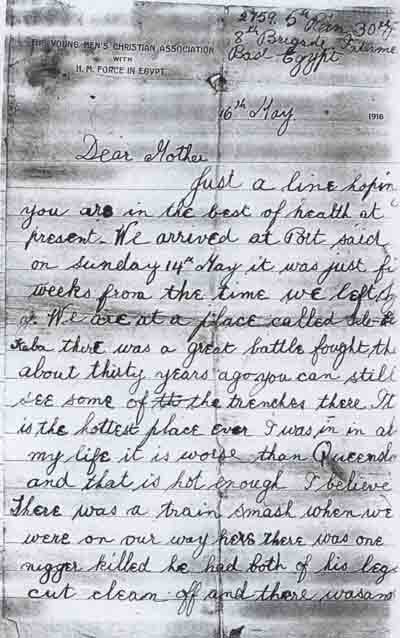 2759. 5th Ran 30th
8th Brigade
Base Egypt
THE YOUNG MEN'S CHRISTIAN ASSOCIATION
WITH
H. M. FORCE IN EGYPT.
16th May. 1916
Dear Mother
Just a line hopin
you are in the best of health at
present. We arrived at Port said
on Sunday 14th May it was just fi
weeks from the time we left
We are at a place called Tele-
Keba there was a great battle fought th
about thirty years ago you can still
see some of the the trenches there It
is the hottest place ever I was in in al
my life it is worse than Queensla
and that is hot enough I believe
There was a train smash when we
were on our way here there was one
nigger killed he had both of his leg
cut clean off and there was an